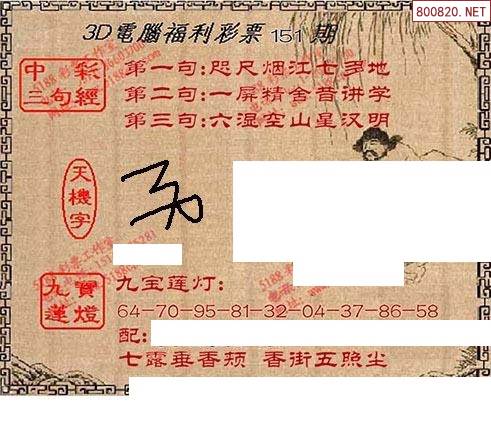 800820.NET
3D電腦福利彩票151期
中彩
三句經
第一句:咫尺烟江七多地
第二句:一屏精舍昔讲学
第三句:六混空山星汉明
天機字
九寶
蓮燈
九宝莲灯:
64-70-95-81-32-04-37-86-58
配:
七露垂香颊 香街五照尘